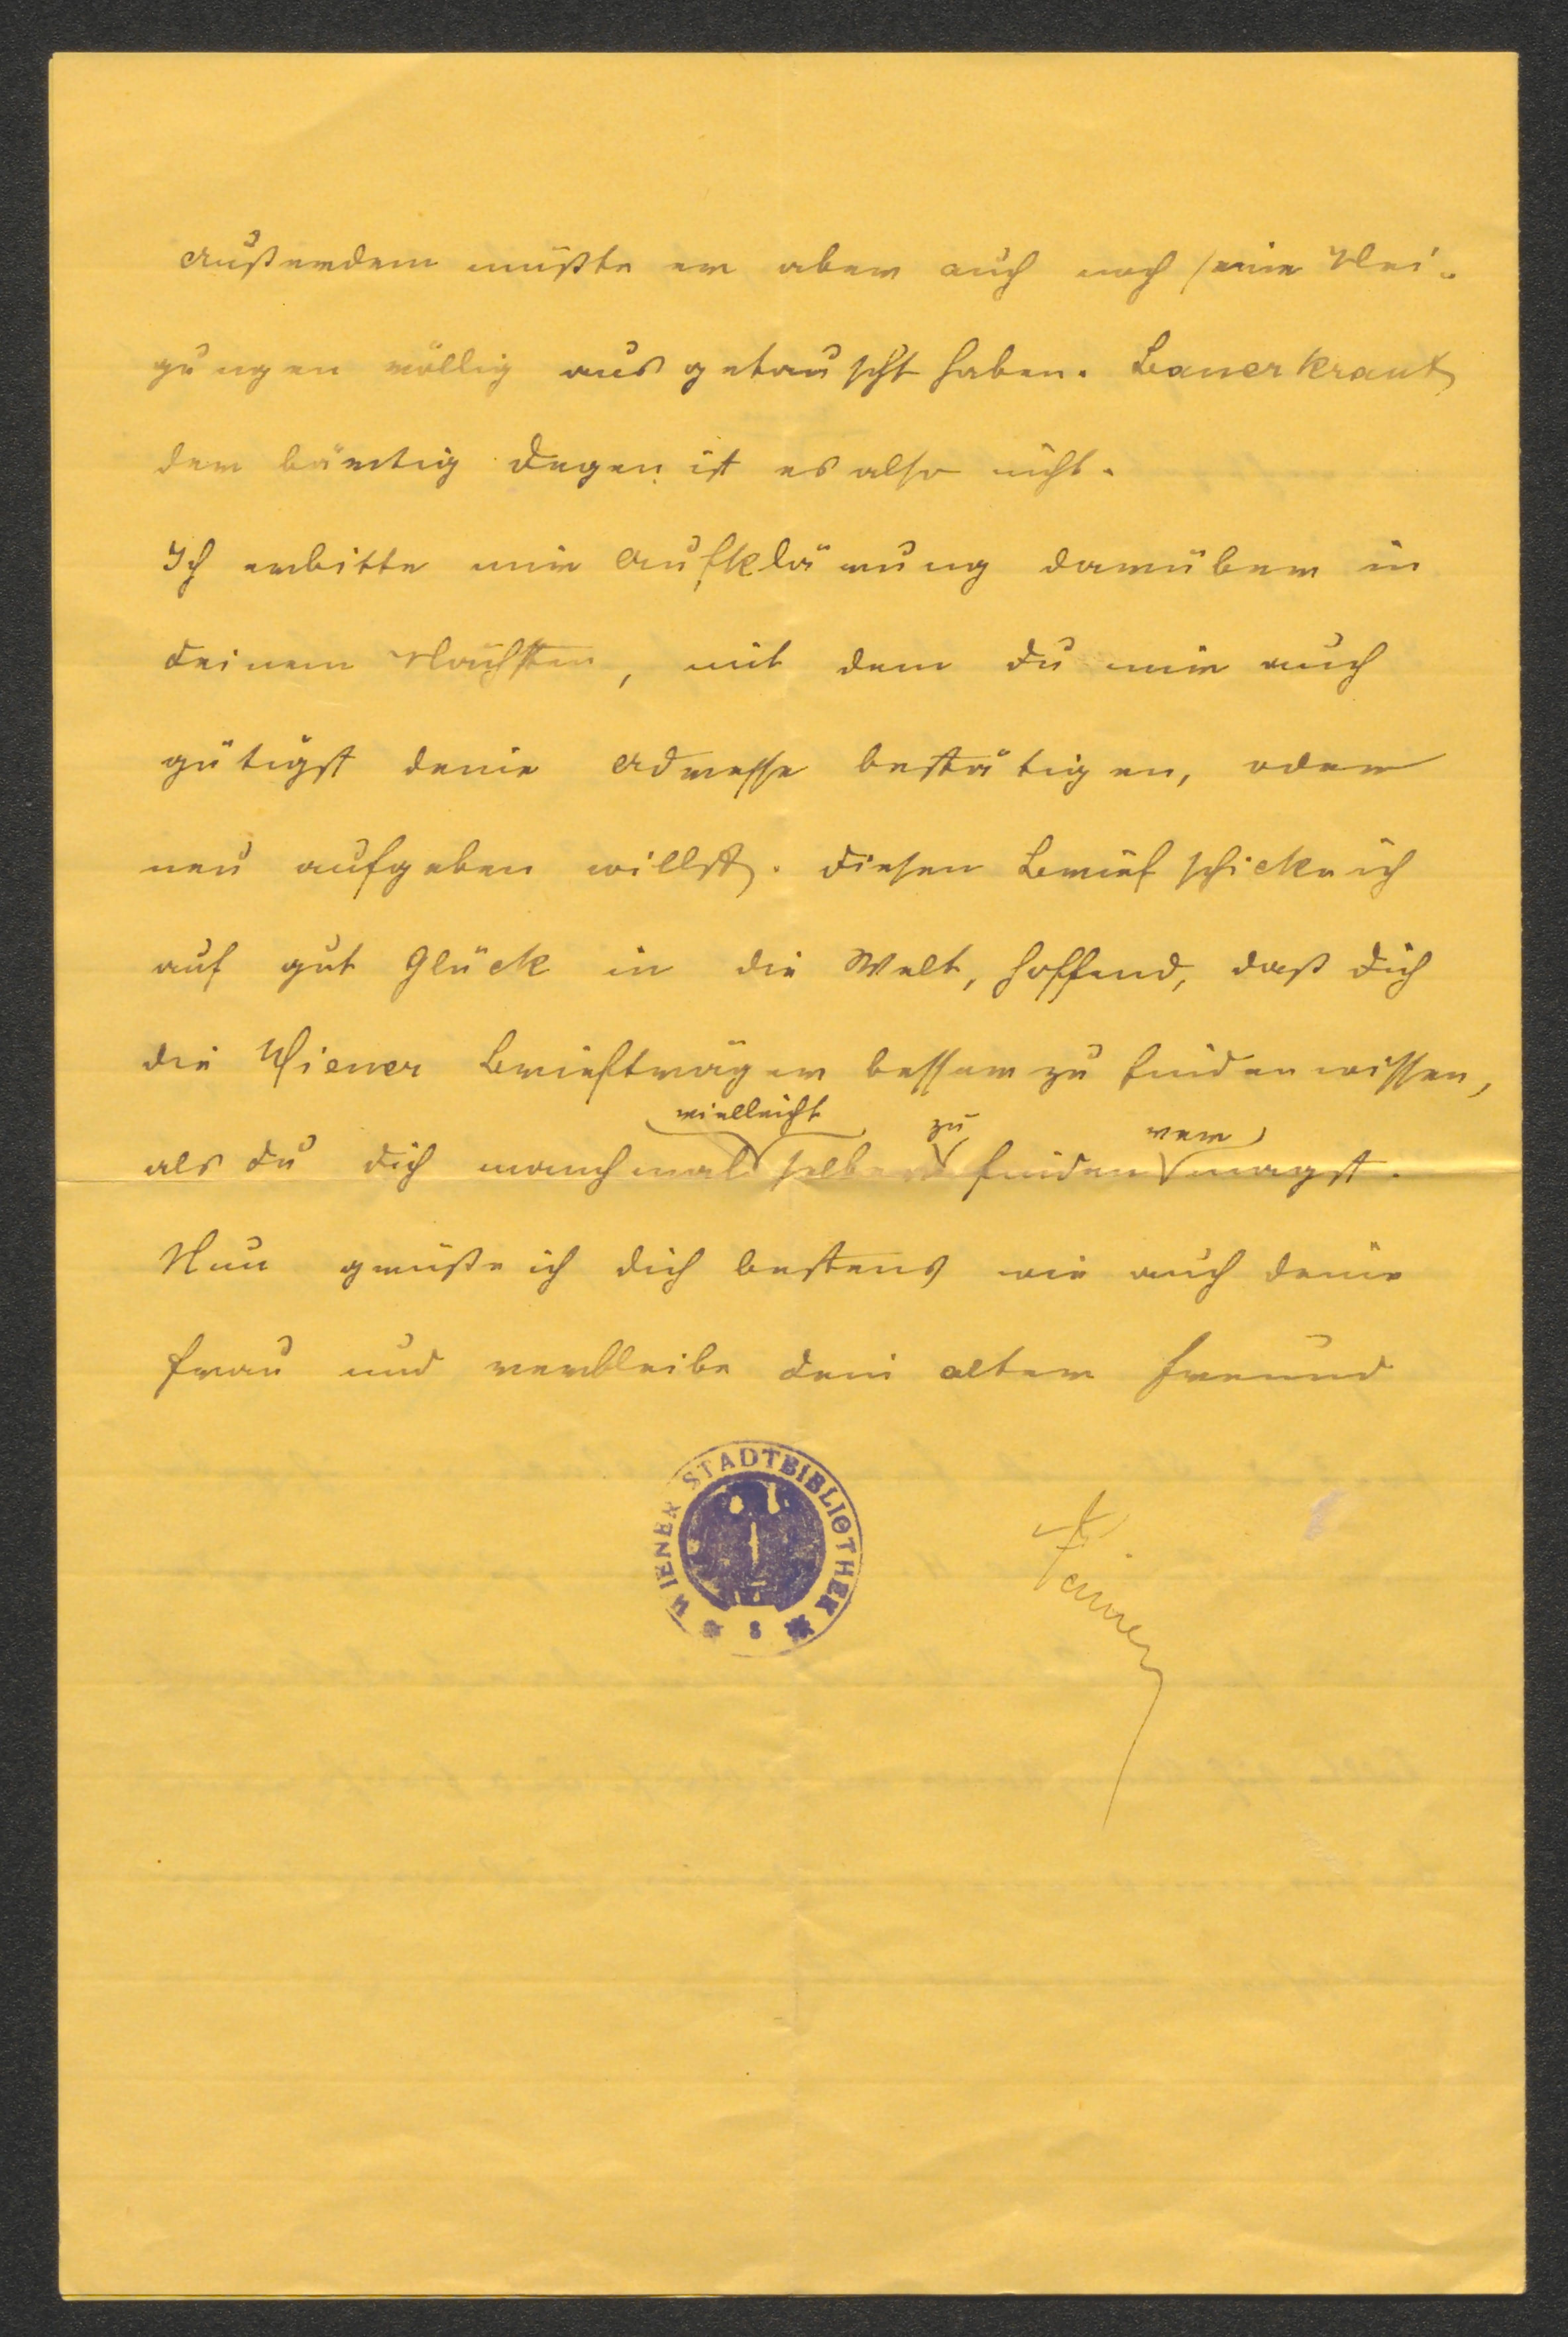 Außerdem müßte er aber auch noch seine Nei-
gungen völlig ausgetauscht haben. Bauerkraut
der bärtig Degen ist es also nicht.
Ich erbitte mir Aufklärung darüber in
Deinem Nächsten, mit dem Du mir auch
gütigst Deine Adresse bestätigen, oder
neu aufgeben willst. Diesen Brief schicke ich
auf gut Glück in die Welt, hoffend, daß Dich
die Wiener Briefträger besser zu finden wissen,
vielleicht zu ver
als Du Dich manchmal selber finden magst.
Nun grüße ich Dich bestens wie auch Deine
Frau und verbleibe Dein alter Freund
WIENER STADTBIBLIOTHEK